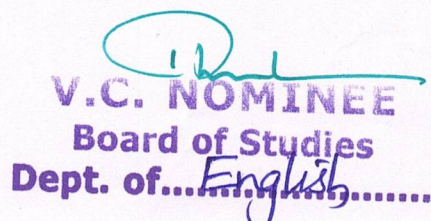 V.C. NOMINEE
Board of Studies
Dept. of.....English.........